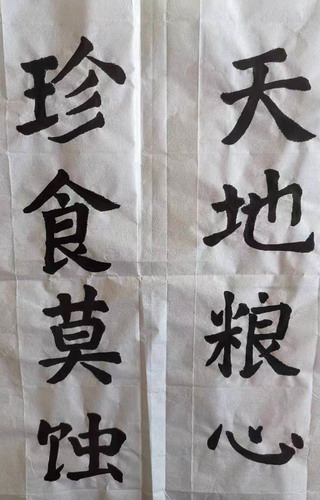 天地粮心
珍食莫蚀